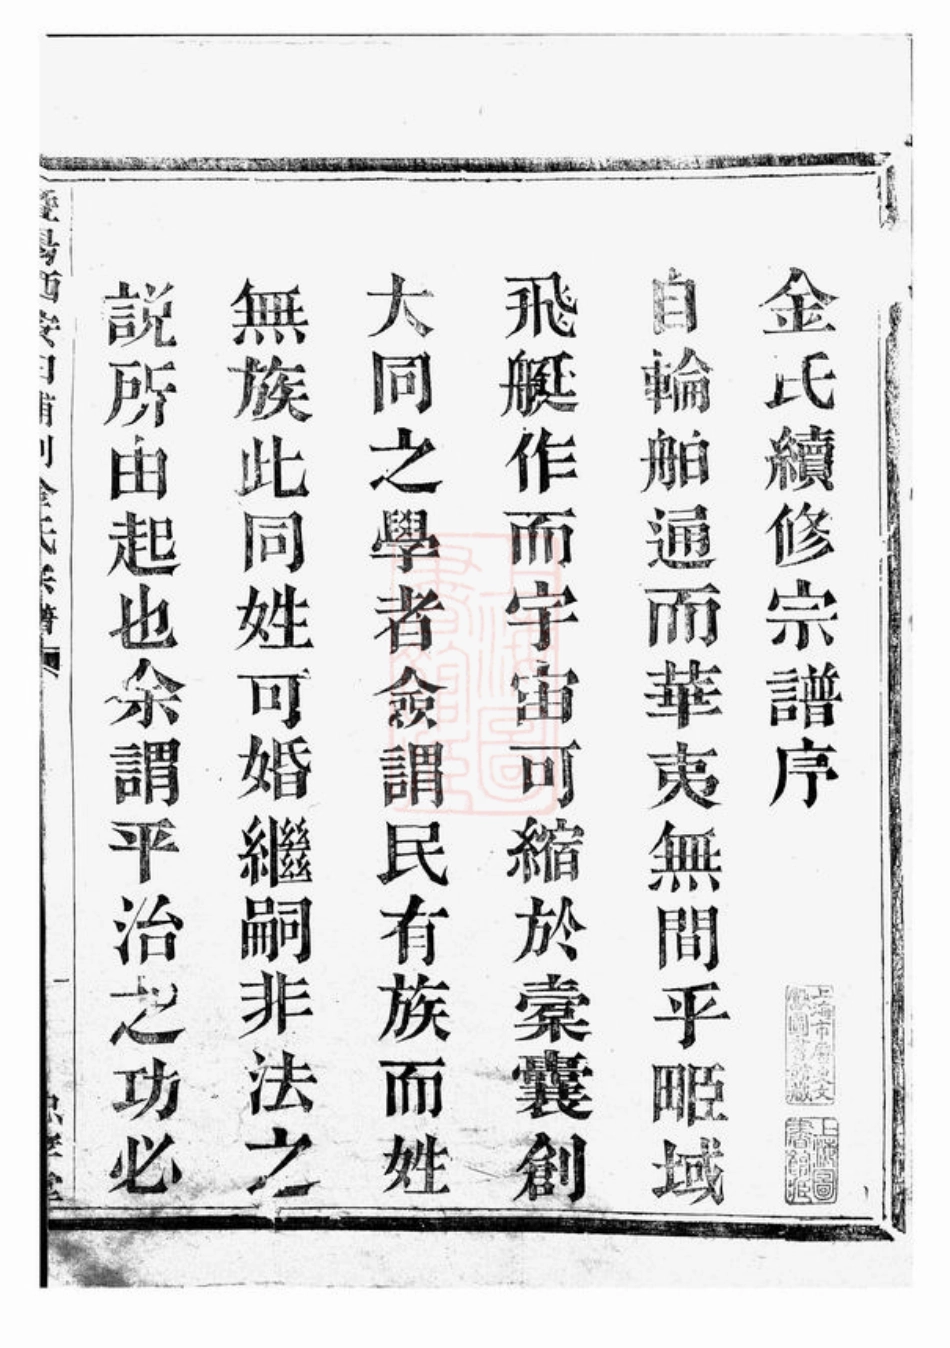 金氏續修宗譜序
自輪舶通而華夷無間乎畛域
飛艇作而宇宙可縮於橐囊創
大同之學者僉謂民有族而姓
無族此同姓可婚繼嗣非法之
説所由起也余謂平治之功必
暨陽西安田浦刂金氏宗譜
上海圖書館藏